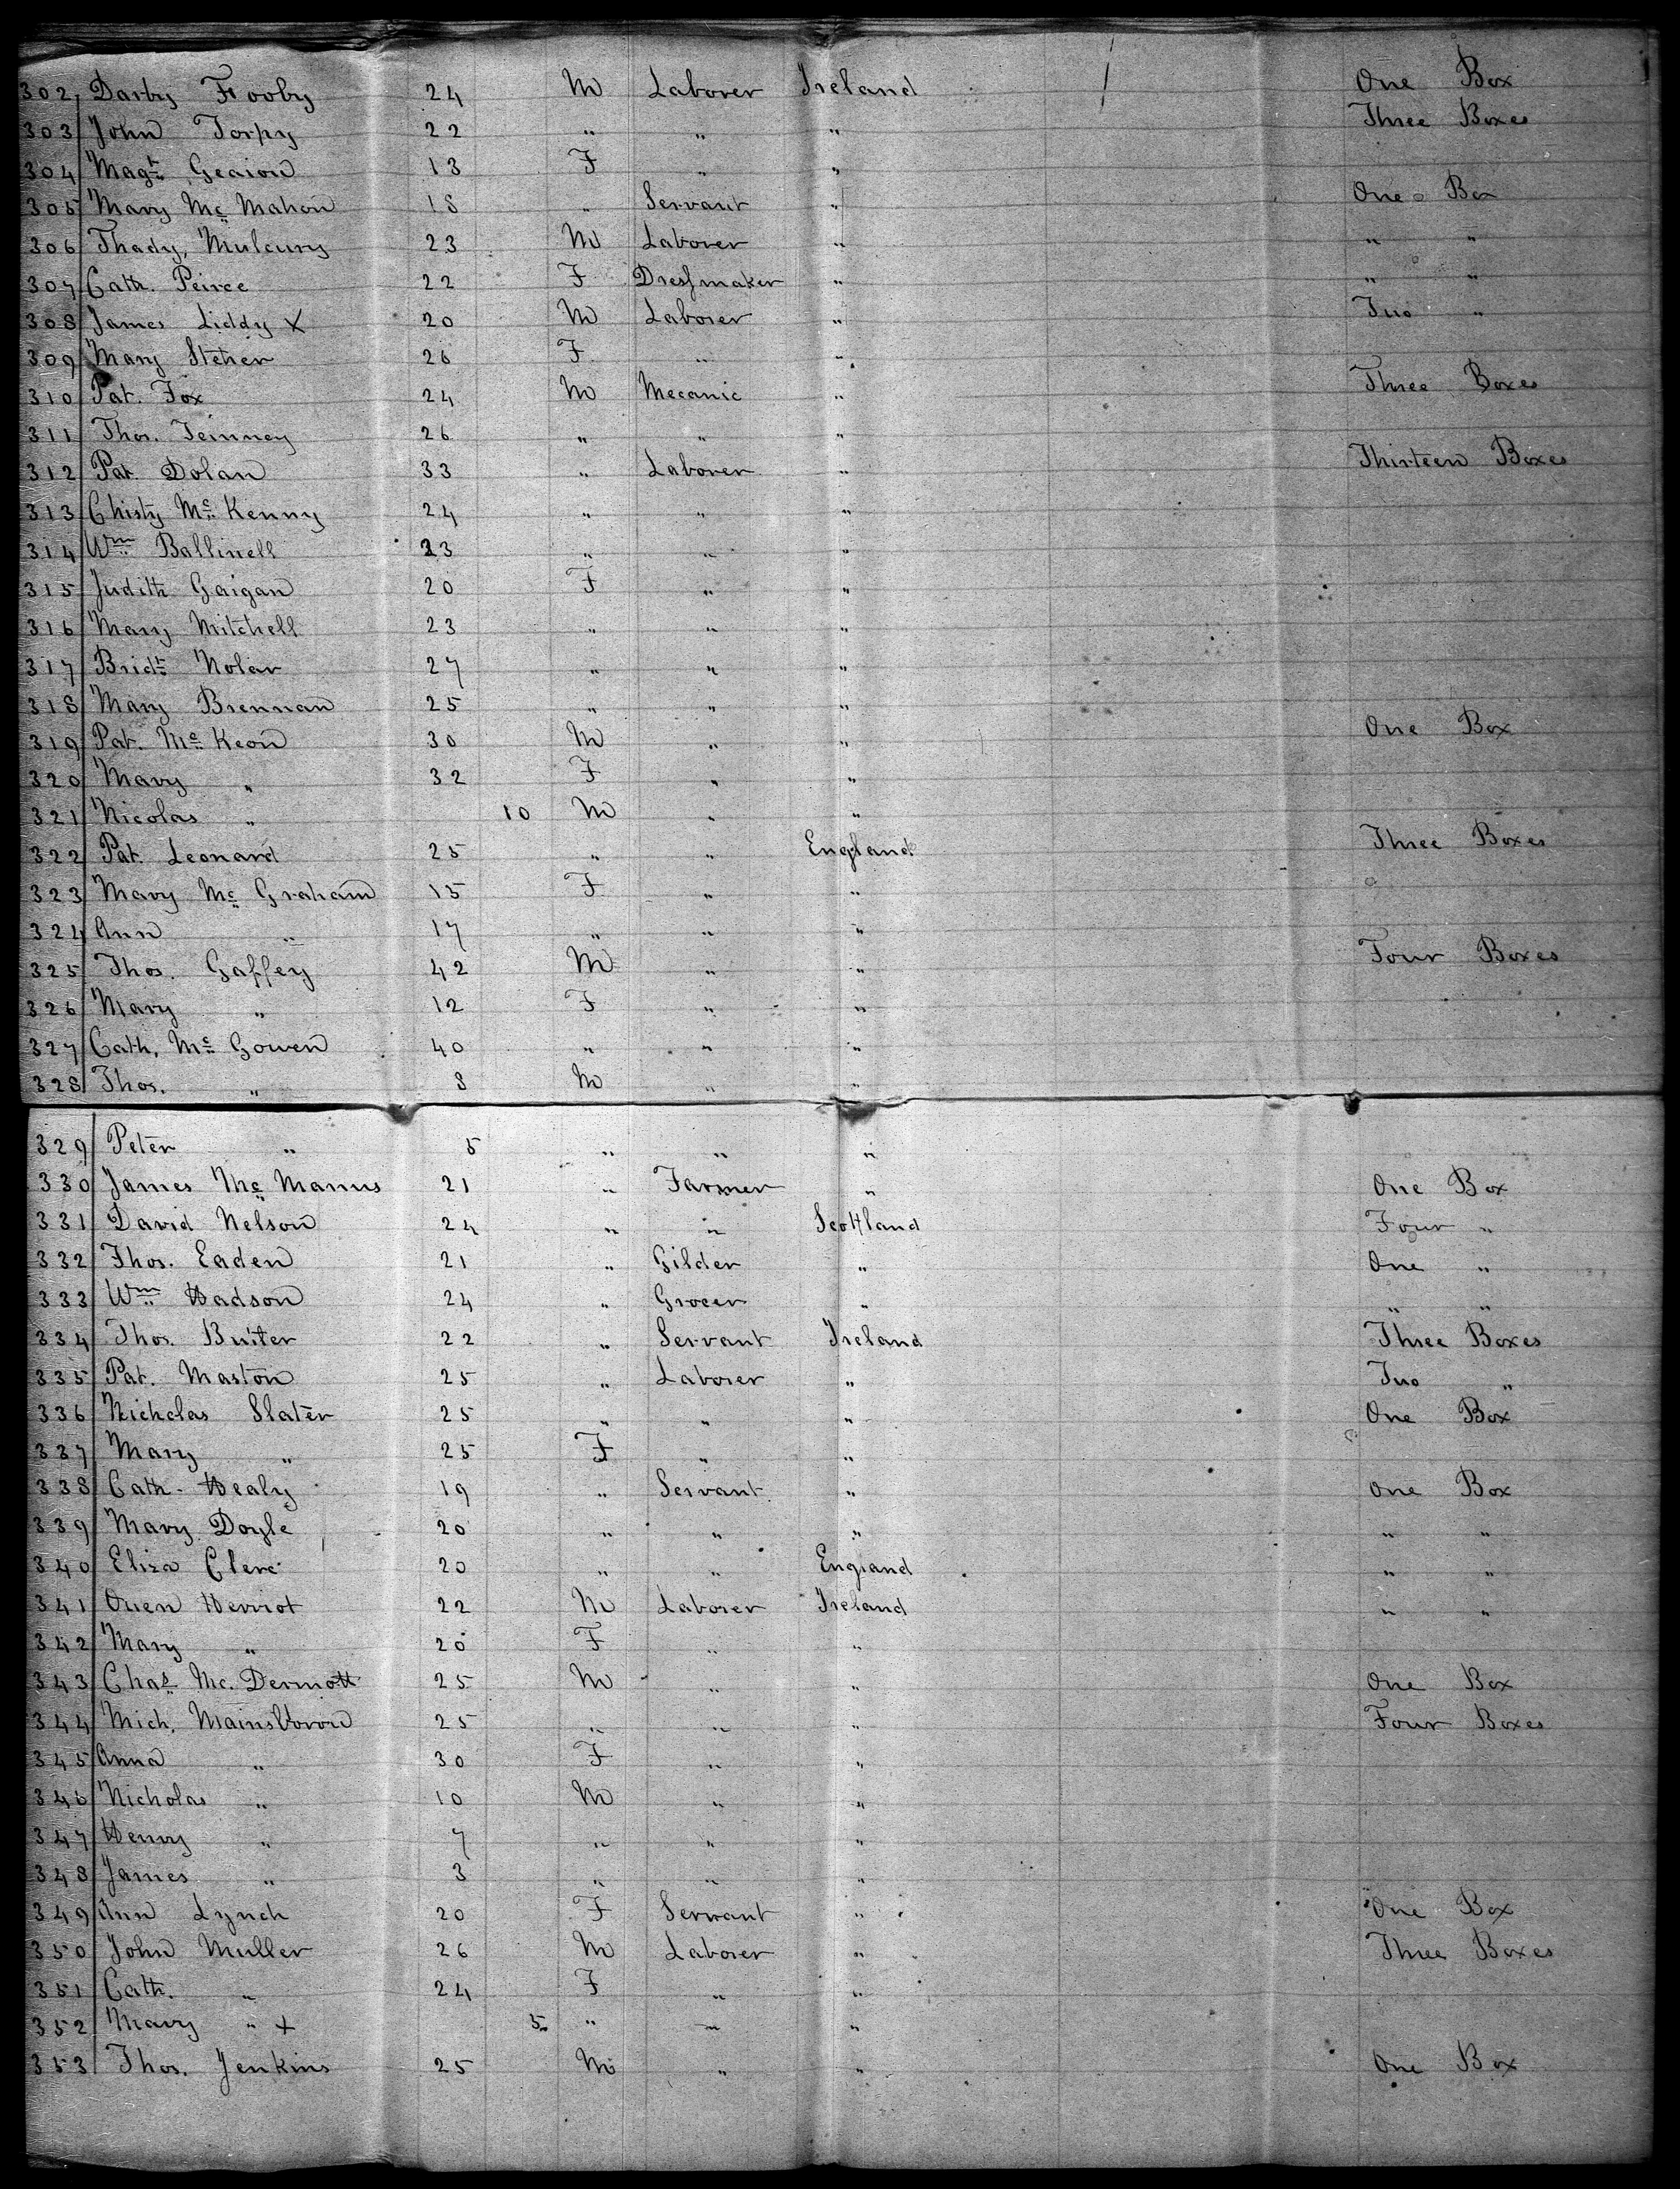 302 Darby Frooby 24 M Laborer Ireland One Box
303 John Torpy 22 " " " Three Boxes
304 Magt. Geaion 13 F " "
305 Mary Mc Mahon 18 " Servant " One Box
306 Thady, Mulcury 23 M Laborer " " "
307 Cath. Peirce 22 F Dressmaker " " "
308 James Liddy X 20 M Laborer " Two "
309 Mary Steher 26 F " "
310 Pat. Fox 24 M Mecanic " Three Boxes
311 Thos. Teinney 26 " " "
312 Pat. Dolan 33 " Laborer " Thirteen Boxes
313 Chisty Mc Kenny 24 " " "
314 Wm Ballinell 23 " " "
315 Judith Gaigan 20 F " "
316 Mary Mitchell 23 " " "
317 Bridt Nolar 27 " " "
318 Mary Brennan 25 " " "
319 Pat. Mc Keon 30 M " " One Box
320 Mary " 32 F " "
321 Nicolas " 10 M " "
322 Pat. Leonard 25 " " England Three Boxes
323 Mary Mc Graham 15 F " "
324 Ann " 17 " " "
325 Thos. Gaffey 42 M " " Four Boxes
326 Mary " 12 F " "
327 Cath. Mc Gowen 40 " " "
328 Thos. " 8 M " "
329 Peter " 5 " " "
330 James Mc Manus 21 " Farmer " One Box
331 David Nelson 24 " " Scottland Four "
332 Thos. Eaden 21 " Gilder " One "
333 Wm Hadson 24 " Grocer " " "
334 Thos. Buiter 22 " Servant Ireland Three Boxes
335 Pat. Maston 25 " Laborer " Two "
336 Nicholas Slater 25 " " " One Box
337 Mary " 25 F " "
338 Cath. Healy 19 " Servant " One Box
339 Mary Doyle 20 " " " " "
340 Eliza Clerc 20 " " England " "
341 Owen Herriot 22 M Laborer Ireland " "
342 Mary " 20 F " "
343 Chas. Mc. Dermott 25 M " " One Box
344 Mich. Mainsborow 25 " " " Four Boxes
345 Anna " 30 F " "
346 Nicholas " 10 M " "
347 Henry " 7 " " "
348 James " 3 " " "
349 Ann Lynch 20 F Servant " One Box
350 John Muller 26 M Laborer " Three Boxes
351 Cath. " 24 F " "
352 Mary " + 5 " " "
353 Thos. Jenkins 25 M " " One Box